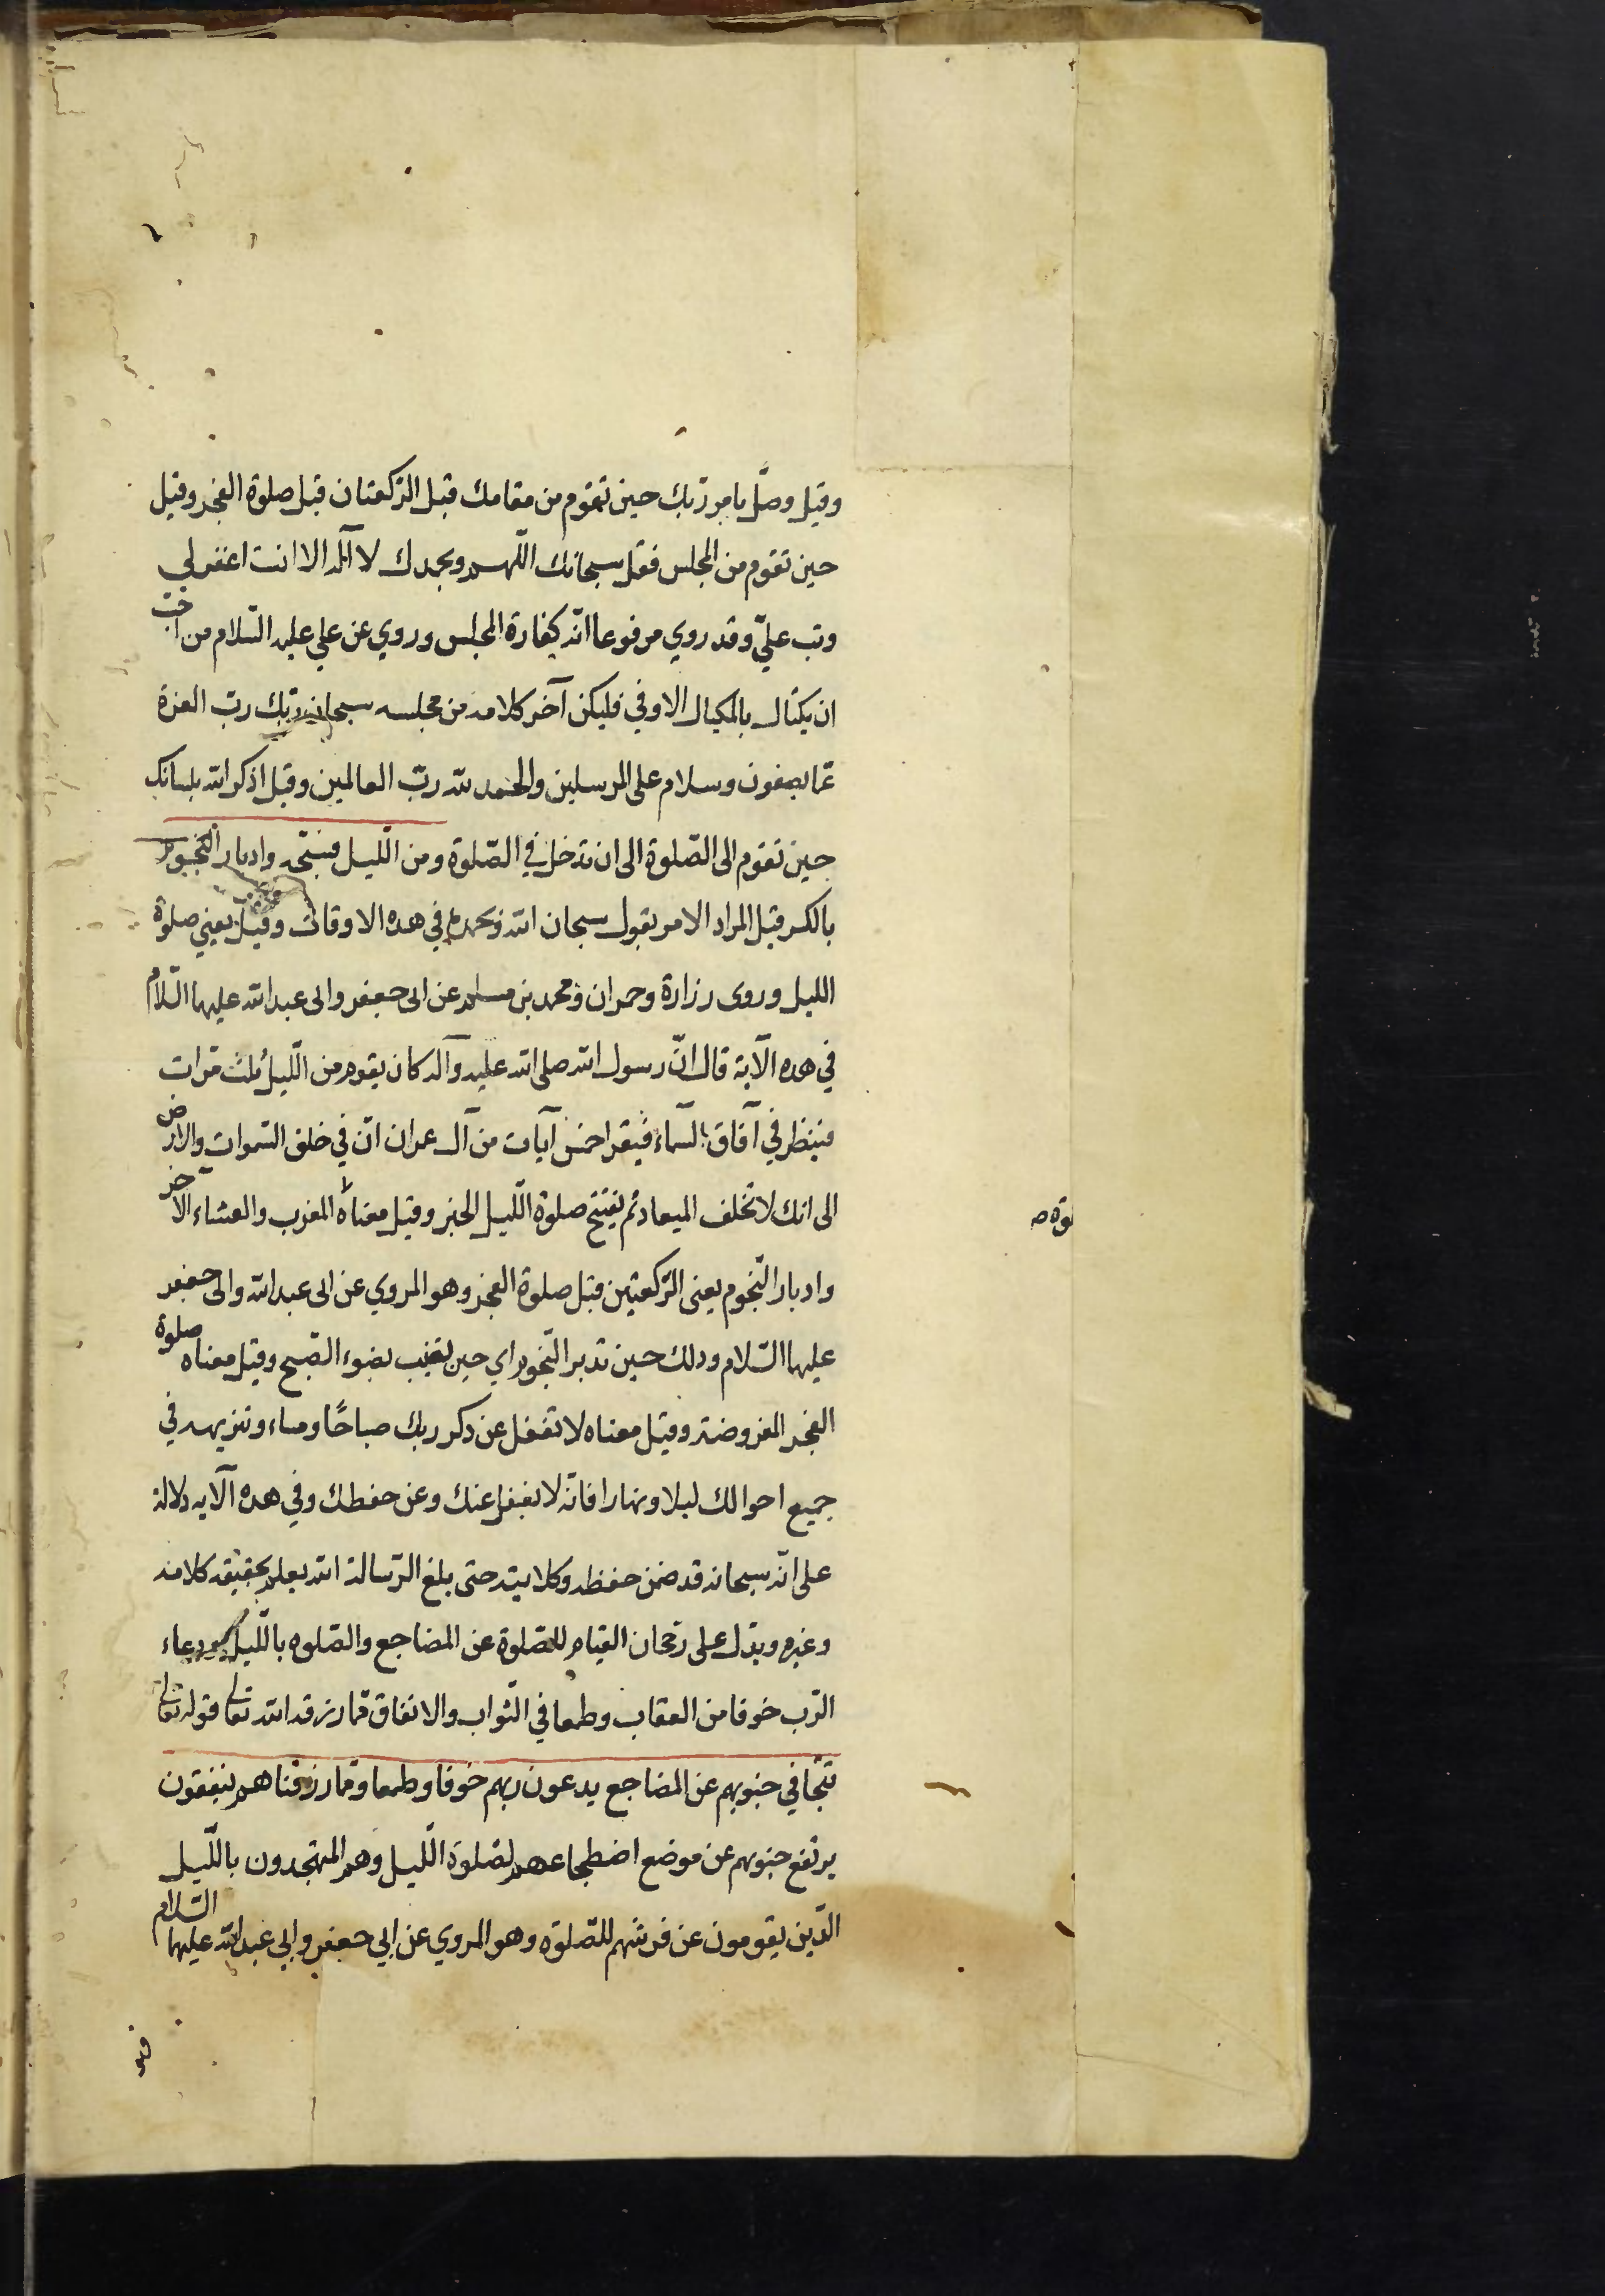 وقيل وصلّ بامر ربك حين تقوم من مقامك قبل الركعتان قبل صلوة الفجر وقيل
حين تقوم من المجلس فقل سبحانك اللّهم وبحمدك لا اله الا انت اغفر لي
وتب عليّ وقد روي مرفوعا انّه كفارة المجلس وروي عن علي عليه السّلام من احبّ
ان يكتال بالمكيال الاوفي فليكن آخر كلامه من مجلسه سبحان ربك ربّ العزة
عمّا يصفون وسلام على المرسلين والحمد لله ربّ العالمين وقيل اذكر الله بلسانك
حين تقوم الى الصّلوة الى ان تدخل في الصّلوة ومن اللّيل فسبّحه وادبار النّجوم
بالكسر قيل المراد الامر بقول سبحان الله وبحمده في هذه الاوقات وقيل يعني صلوة
الليل وروى زرارة وحمران ومحمد بن مسلم عن ابى جعفر وابى عبد الله عليهما السّلام
في هذه الآية قال انّ رسول الله صلى الله عليه وآله كان يقوم من اللّيل ثلث مرات
فينظر في آفاق السّماء فيقرا خمس آيات من آل عمران انّ في خلق السّموات والارض
الى انك لا تخلف الميعاد ثم يفتتح صلوة اللّيل الخبر وقيل معناه المغرب والعشاء الآخر
لوة ص
وادبار النّجوم يعنى الرّكعتين قبل صلوة الفجر وهو المروي عن ابى عبد الله وابى جعفر
عليهما السّلام وذلك حين تدبر النّجوم اي حين تغيب بضوء الصّبح وقيل معناه صلوة
الفجر المفروضة وقيل معناه لا تغفل عن ذكر ربك صباحًا ومساء وتنزيهه في
جميع احوالك ليلا ونهارا فانّه لا يغفل عنك وعن حفظك وفي هذه الآيه دلالة
على انّه سبحانه قد ضمن حفظه وكلايته حتى بلغ الرّسالة الله يعلم بحقيقه كلامه
وغيره ويدل على رجحان القيام للصّلوة عن المضاجع والصّلوه باللّيل ودعاء
الرّب خوفا من العقاب وطمعا في الثّواب والانفاق ممّا رزقه الله تعالى قوله تعالى
تتجافي جنوبهم عن المضاجع يدعون ربهم خوفا وطمعا وممّا رزقناهم ينفقون
يرتفع جنوبهم عن موضع اضطجاعهم لصلوة اللّيل وهم المتهجدون باللّيل
الذين يقومون عن فرشهم للصّلوة وهو المروي عن ابي جعفر وابي عبد الله عليهما السّلام